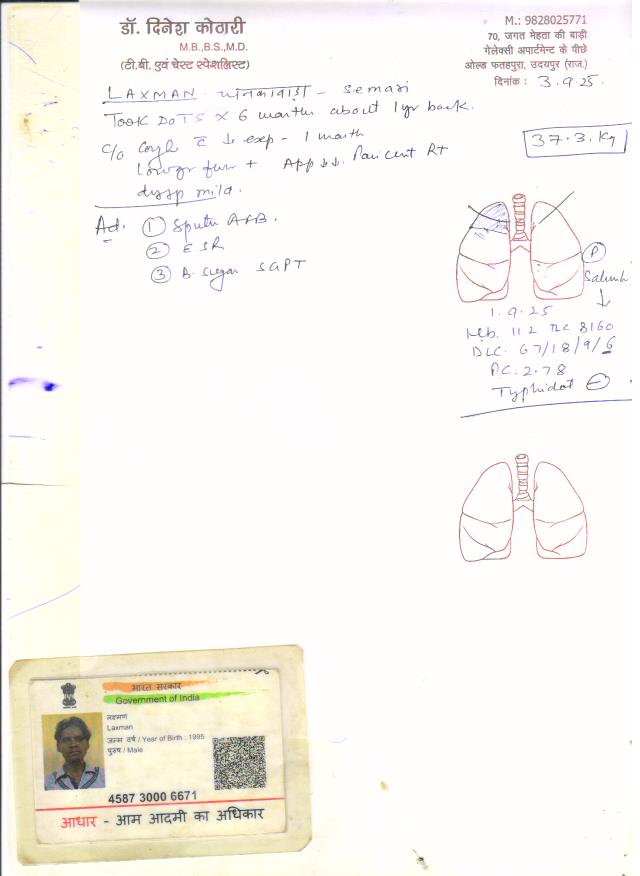 डॉ. दिनेश कोठारी
M.B.,B.S.,M.D.
(टी.बी. एवं चेस्ट स्पेशलिस्ट)
M.: 9828025771
70, जगत मेहता की बाड़ी
गेलेक्सी अपार्टमेन्ट के पीछे
ओल्ड फतहपुरा, उदयपुर (राज.)
दिनांक : 3.9.25.
LAXMAN - Semari
Took DOTS X 6 months about 1yr back.
c/o c̄ ↓ exp - 1 month
37.3. Kg
Low gr + App ↓↓. RT
dysp mild.
Ad. ① Sputm AFB.
② ESR
③ B. Sugar SGPT
P
Salumb
↓
1.9.25
Hb. 11.2 TLC 8160
DLC. 67/18/9/6
PC. 2.78
Typhidot ⊖
भारत सरकार
Government of India
लक्ष्मण
Laxman
जन्म वर्ष / Year of Birth : 1995
पुरुष / Male
4587 3000 6671
आधार - आम आदमी का अधिकार